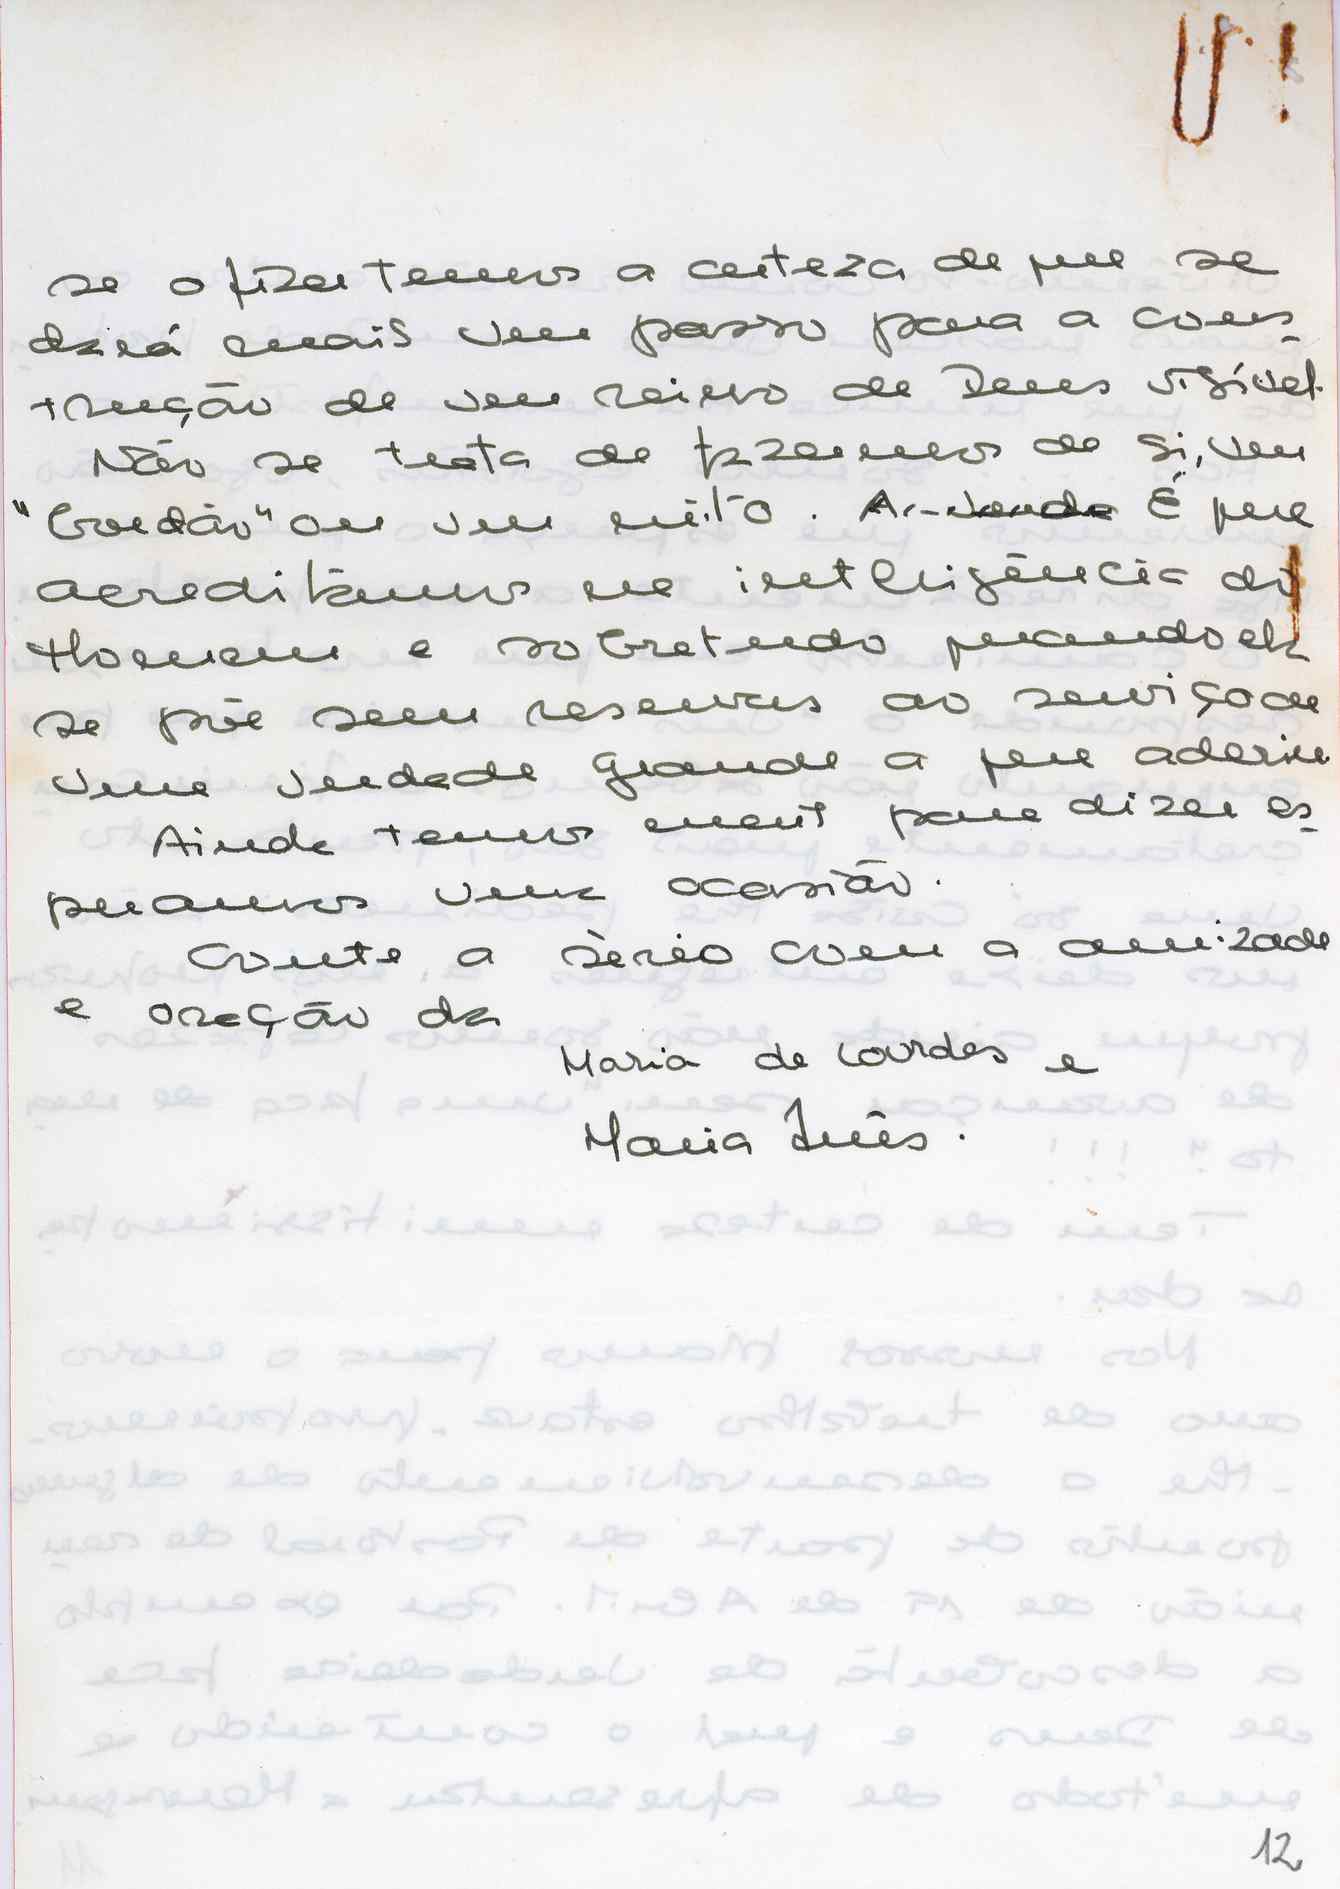 se o fizer temos a certeza de que se
dará mais um passo para a cons-
trução de um reino de Deus visível.
Não se trata de fazermos de si, um
"bordão" ou um mito. É que
acreditamos na inteligência do
Homem e sobretudo quando ele
se põe sem reservas ao serviço de
uma verdade grande a que aderiu
Ainda temos muito para dizer es-
peramos uma ocasião.
Conte a sério com a amizade
e oração da
Maria de Lourdes e
Maria Inês.
12